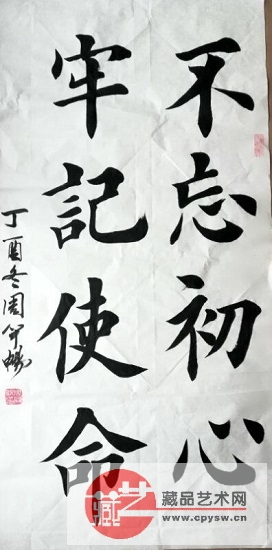 不忘初心
牢記使命
丁酉冬周
藏艺
藏品艺术网
www.cpysw.cn